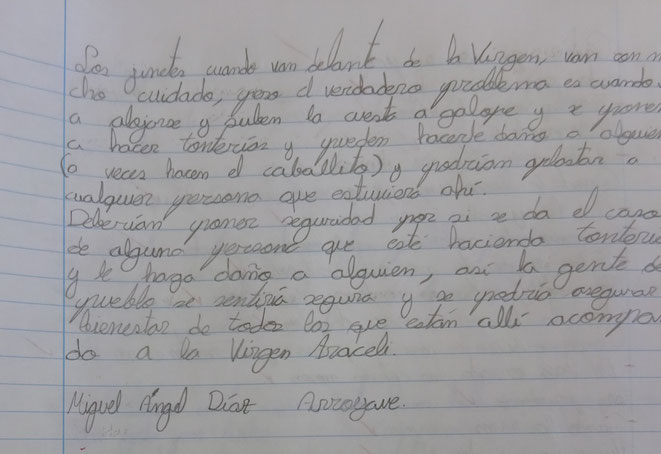 Los jinetes cuando van delante de la Virgen, van con m
cho cuidado, pero el verdadero problema es cuando
a alejarse y suben la cuesta a galope y se ponen
a hacer tonterías y pueden hacerle daño a alguien
(a veces hacen el caballito) y podrían aplastar a
cualquier persona que estuviera ahí.
Deberían poner seguridad por si se da el caso
de alguna persona que esté haciendo tontería
y le haga daño a alguien, así la gente de
pueblo se sentiría segura y se podría asegurar
bienestar de todos los que están allí acompa
do a la Virgen Araceli.
Miguel Ángel Díaz Arroyave.